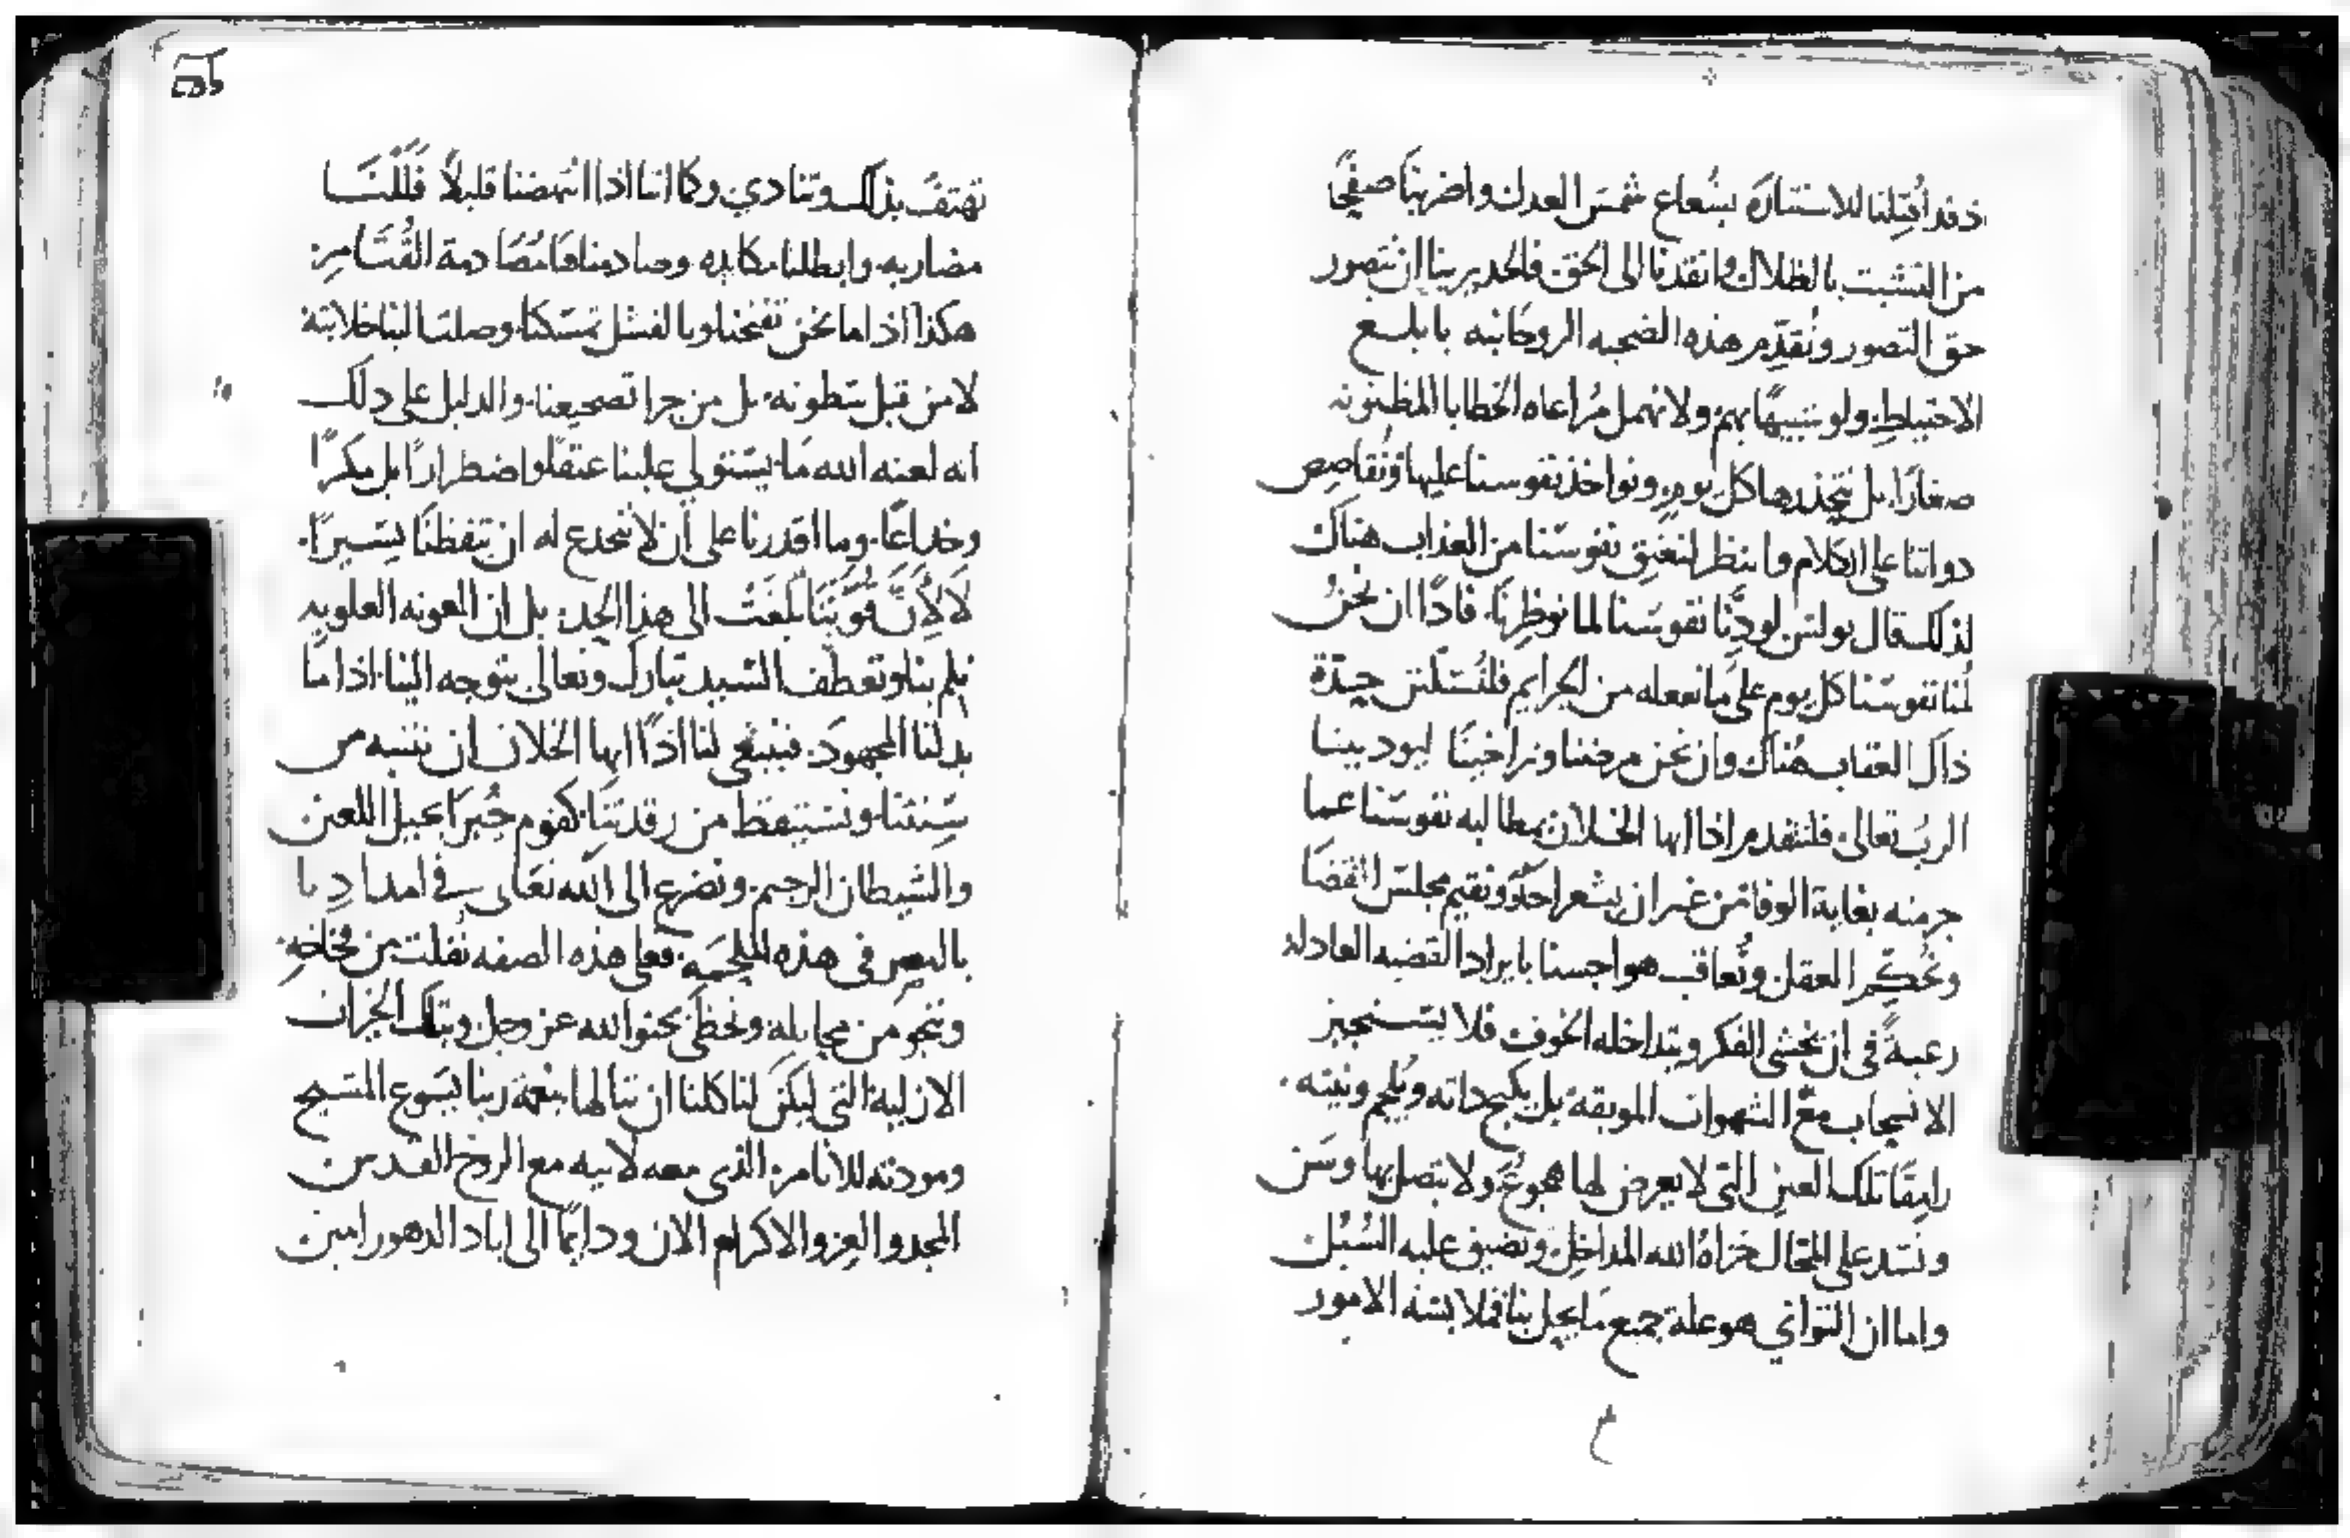 قد أقبلنا للاستنارة بشعاع شمس العدل واضربنا صفحًا
من التشبت بالظلال وانقدنا الى الحق. فالجدير بنا ان نتصور
حق التصور ونُقدِّم هذه الضحيه الروحانيه بابلغ
الاحتياط ولو سَبيهًا بهم ولا نهمل مُراعاه الخطايا المظنونه
صغارًا. بل نتحِذرها كل يوم. ونواخذ نفوسنا عليها ونُقاصِص
دواتنا على الكلام والنظر لنعتِق نفوسنا من العذاب هناك
لذلك قال بولس لو دِنَّا نفوسَنا لما نوظِرنَا. فاذًا ان نحنُ
لُمنا نفوسنا كل يوم على ما نفعله من الجرايم فلنُسَكّنن حِدّة
ذاك العقاب هُناك وان نحن مرضنا وتراخينَا ليود بينا
الربّ تعالى. فلنتقدم اذا ايها الخلان بمطالبه نفوسنا عما
جرمته بغاية الوفا من غير ان يشعر احدٌ ونقيم مجلس القضَا
ونُحكِّم العقل ونُعاقب هواجسنا بايراد القضيه العادله
رغبةً في ان يخشى الفكر ويتداخله الخوف فلا يستجيز
الانسحاب مع الشهوات الموبقة. بل يكبح داته ويُلجم ونيته.
رامِقًا تلك العين التي لا يعرض لها هجوعٌ ولا يتصل بها وسَن
ونسَد على المحَال خزاهُ الله المداخل ونضيق عليه السُبُل
واما ان التواني هو علة جميع ما يحل بنا فملابسَه الامور
تهتفُ بذلك وتنادي. وكما اننا اذا انتهضنا قليلاً فَلَلْنَا
مضاربه. وابطلنا مكايده وصادمناه مُصَادمة القُسَامِ
هكذا اذا ما نحن تفخنا وبالفشل تمسكنا. وصلت الينا خلابته
لا من قبل سَطوته. بل من جرا تضجيعنا. والدليل على دلك
انه لعنه الله مَا يستولي علينا عتقلا واضطرارًا بل مكرًا
وخداعًا. وما اقدرنا على أن لا ننخدع له ان تيقظنَا يَسيرًا.
لا لأنَّ قُوّتنَا بَلغَتْ الى هذا الحد. بل ان العونه العلويه
تلم بنا وتعطف السيد تبارك وتعالى يتوجه الينا. اذا ما
بدلنا المجهود. فينبغي لنا اذًا ايها الخلان ان ننتبه من
سِنتنا ونستيقظ من رقدتنَا. كقوم خُبرَا بحيل اللعين
والشيطان الرجيم. ونضرع الى الله تعَالى في امدادِنا
بالنصر في هذه الملحَمه. فعلى هذه الصفه نُفلت من فخاخهِ
وننجو من حبايله ونحظَى بحنو الله عز وجل وبتلك الخيرات
الازليه التي ليكن لنا كلنا ان ننالها بنعمة ربنا يسوع المسيح
ومودته للانام. الذي معه لابيه مع الروح القدس
المجد والعز والاكرام الان ودايمًا الى اباد الدهور امين